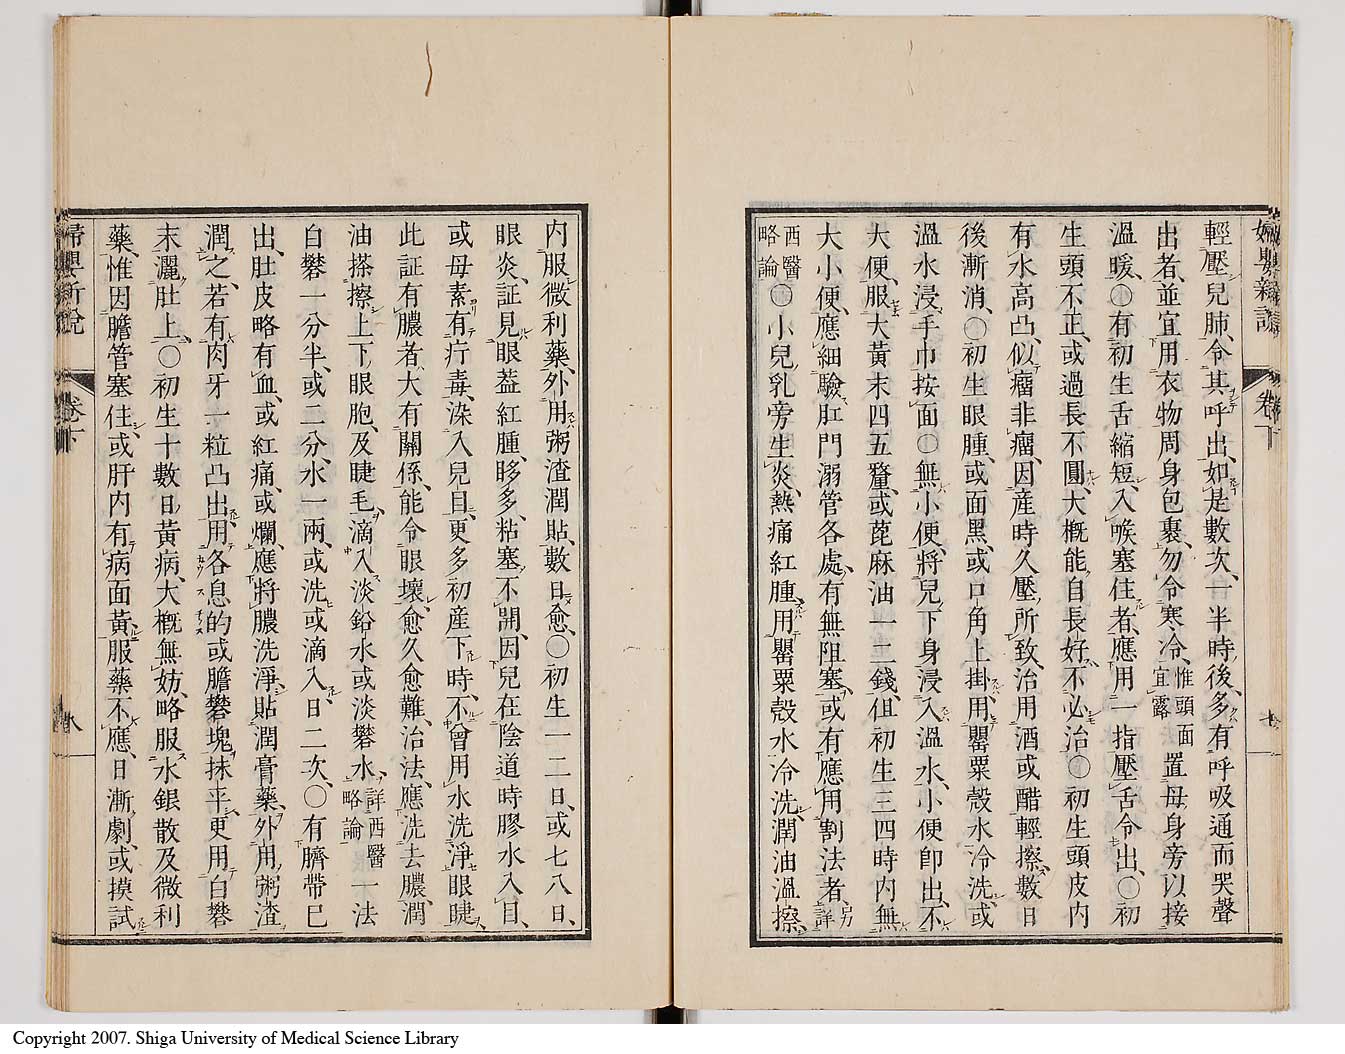 婦嬰新說 卷下 七
輕壓兒肺、令其呼出、如是數次、一半時後、多有呼吸通而哭聲
出者、並宜用衣物周身包裹、勿令寒冷、惟頭面宜露置母身旁以接
溫暖、○有初生舌縮短、入喉塞住者、應用一指壓舌令出、○初
生頭不正、或過長不圓、大概能自長好、不必治○初生頭皮内
有水高凸、似瘤非瘤、因產時久壓所致、治用酒或醋輕擦、數日
後漸消、○初生眼腫、或面黑、或口角上掛、用罌粟殼水冷洗、或
溫水浸手巾按面○無小便、將兒下身浸入溫水、小便即出、不
大便、服大黃末四五釐、或蓖麻油一二錢、但初生三四時内無
大小便、應細驗肛門溺管各處、有無阻塞、或有應用割法者、另詳
西醫略論○小兒乳旁生炎、熱痛紅腫、用罌粟殼水冷洗、潤油溫擦、
内服微利藥、外用粥渣潤貼、數日愈、○初生一二日、或七八日、
眼炎、証見眼蓋紅腫、眵多、粘塞不開、因兒在陰道時膠水入目、
或母素有疔毒、染入兒目、更多初產下時、不曾用水洗淨眼睫
此証有膿者、大有關係、能令眼壞、愈久愈難、治法、應洗去膿、潤
油搽擦上下眼胞、及睫毛、滴入淡鉛水或淡礬水、詳西醫略論一法
白礬一分半、或二分、水一兩、或洗或滴入、日二次、○有臍帶已
出、肚皮略有血、或紅痛、或爛、應將膿洗淨、貼潤膏藥、外用粥渣
潤之、若有肉牙一粒凸出、用各息的或膽礬塊抹平、更用白礬
末灑肚上、○初生十數日、黃病、大概無妨、略服水銀散及微利
藥、惟因膽管塞住、或肝内有病面黃、服藥不應、日漸劇、或摸試
婦嬰新說 卷下 八
Copyright 2007. Shiga University of Medical Science Library